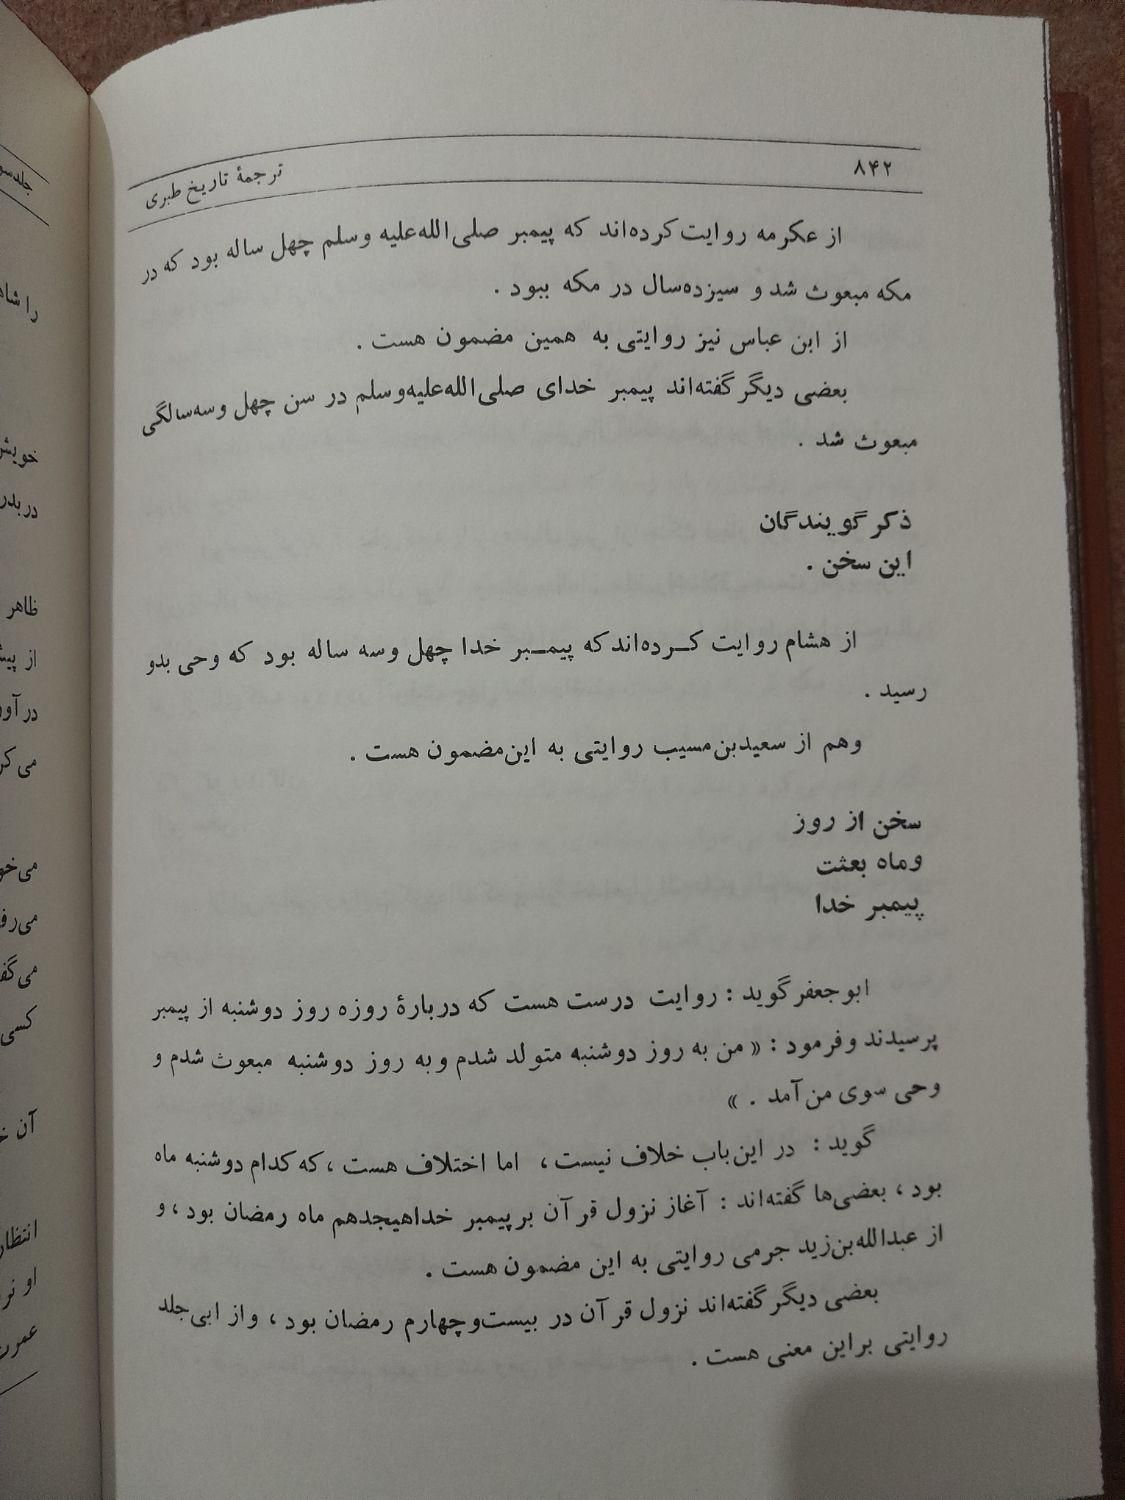 ۸۴۲
ترجمهٔ تاریخ طبری
از عکرمه روایت کرده‌اند که پیمبر صلی‌الله‌علیه وسلم چهل ساله بود که در
مکه مبعوث شد و سیزده‌سال در مکه ببود .
از ابن عباس نیز روایتی به همین مضمون هست .
بعضی دیگر گفته‌اند پیمبر خدای صلی‌الله‌علیه‌وسلم در سن چهل وسه‌سالگی
مبعوث شد .
ذکر گویندگان
این سخن .
از هشام روایت کـرده‌اند که پیمـبر خدا چهل وسه ساله بود که وحی بدو
رسید .
وهم از سعیدبن‌مسیب روایتی به این‌مضمون هست .
سخن از روز
وماه بعثت
پیمبر خدا
ابوجعفر گوید : روایت درست هست که دربارهٔ روزه روز دوشنبه از پیمبر
پرسیدند وفرمود : « من به روز دوشنبه متولد شدم وبه روز دوشنبه مبعوث شدم و
وحی سوی من‌آمد . »
گوید : در این‌باب خلاف نیست ، اما اختلاف هست ، که کدام دوشنبه ماه
بود ، بعضی‌ها گفته‌اند : آغاز نزول قرآن برپیمبر خداهیجدهم ماه رمضان بود ، و
از عبدالله‌بن‌زید جرمی روایتی به این مضمون هست .
بعضی دیگر گفته‌اند نزول قرآن در بیست‌وچهارم رمضان بود ، واز ابی‌جلد
روایتی براین معنی هست .
جلدسو
را شاه
خویش
دربدر
ظاهر
از پیش
درآور
می‌کر
می‌خو
می‌رف
می‌گف
کسی
آن
انتظار
او نر
عمر